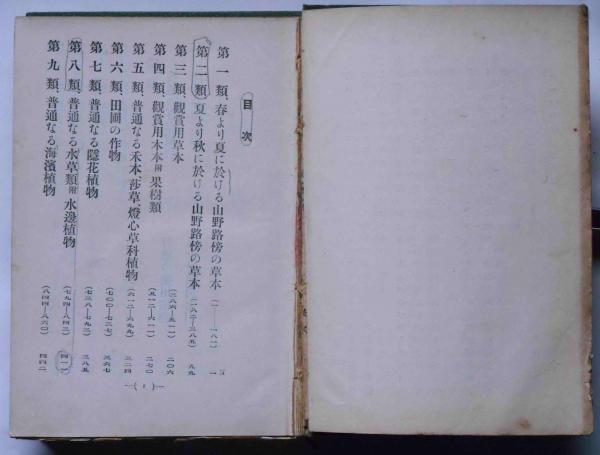 目次
第一類、春より夏に於ける山野路傍の草本 (一—一八一) 一
第二類、夏より秋に於ける山野路傍の草本 (一八二—三八五) 八九
第三類、觀賞用草本 (三八六—五一一) 二〇六
第四類、觀賞用木本附果樹類 (五一二—六一一) 二七〇
第五類、普通なる禾本、莎草、燈心草科植物 (六一二—六九九) 三二四
第六類、田圃の作物 (七〇〇—七三七) 三六七
第七類、普通なる隱花植物 (七三八—七九三) 三八五
第八類、普通なる水草類附水邊植物 (七九四—八四三) 四一一
第九類、普通なる海濱植物 (八四四—八六〇) 四四二
—(1)—